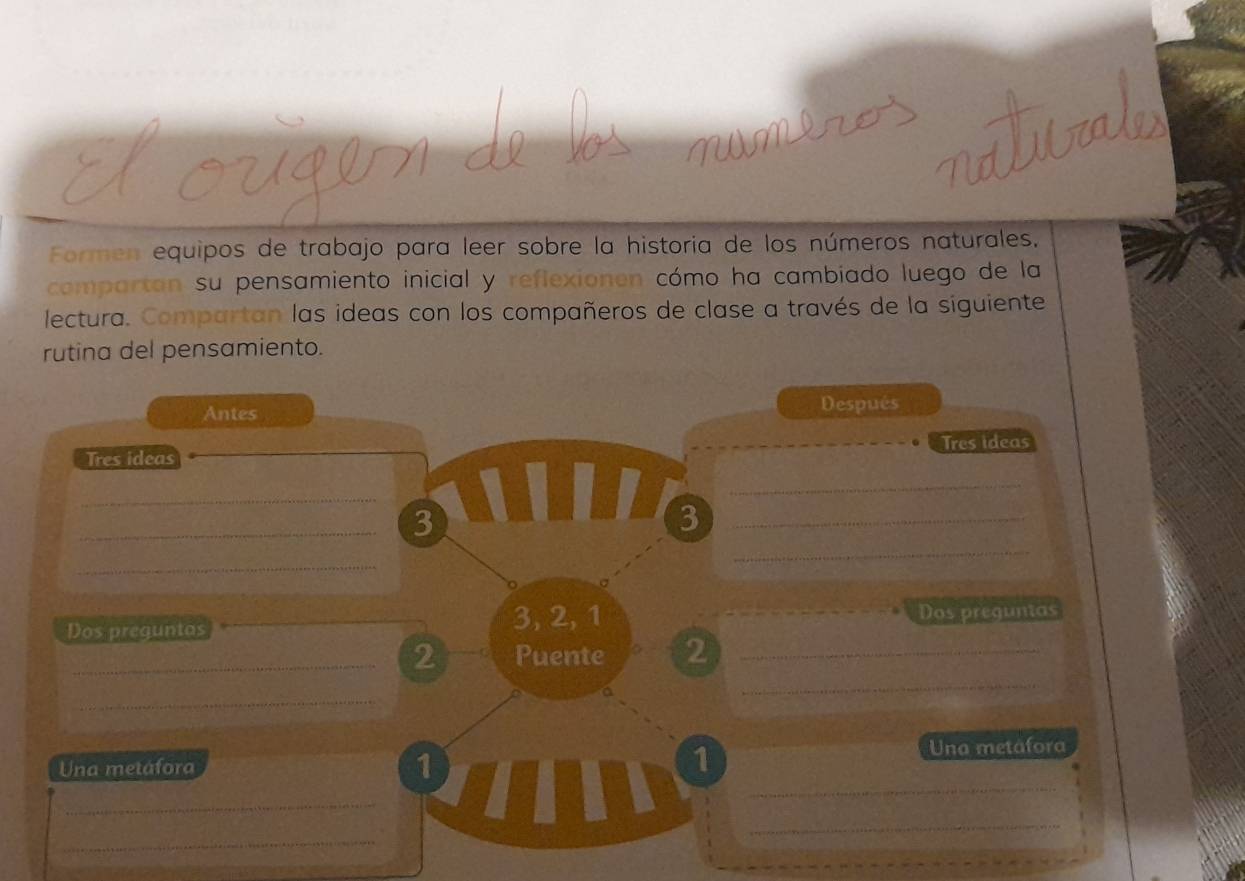 El origen de los numeros naturales
Formen equipos de trabajo para leer sobre la historia de los números naturales,
compartan su pensamiento inicial y reflexionen cómo ha cambiado luego de la
lectura. Compartan las ideas con los compañeros de clase a través de la siguiente
rutina del pensamiento.
Antes
Después
Tres ideas
Tres ideas
3
3
3, 2, 1
Puente
Dos preguntas
Dos preguntas
2
2
Una metáfora
Una metáfora
1
1